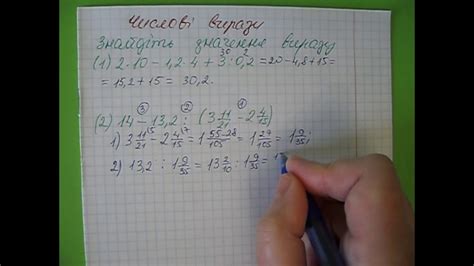 Числові вирази
Знайдіть значення виразу
(1) 2·10 − 1,2·4 + 3:0,2 = 20 − 4,8 + 15 =
= 15,2 + 15 = 30,2.
(2) 14 − 13,2 : (3 11/21 − 2 4/15)
1) 3 11/21 − 2 4/15 = 1 (55−28)/105 = 1 27/105 = 1 9/35;
2) 13,2 : 1 9/35 = 13 2/10 : 1 9/35 =